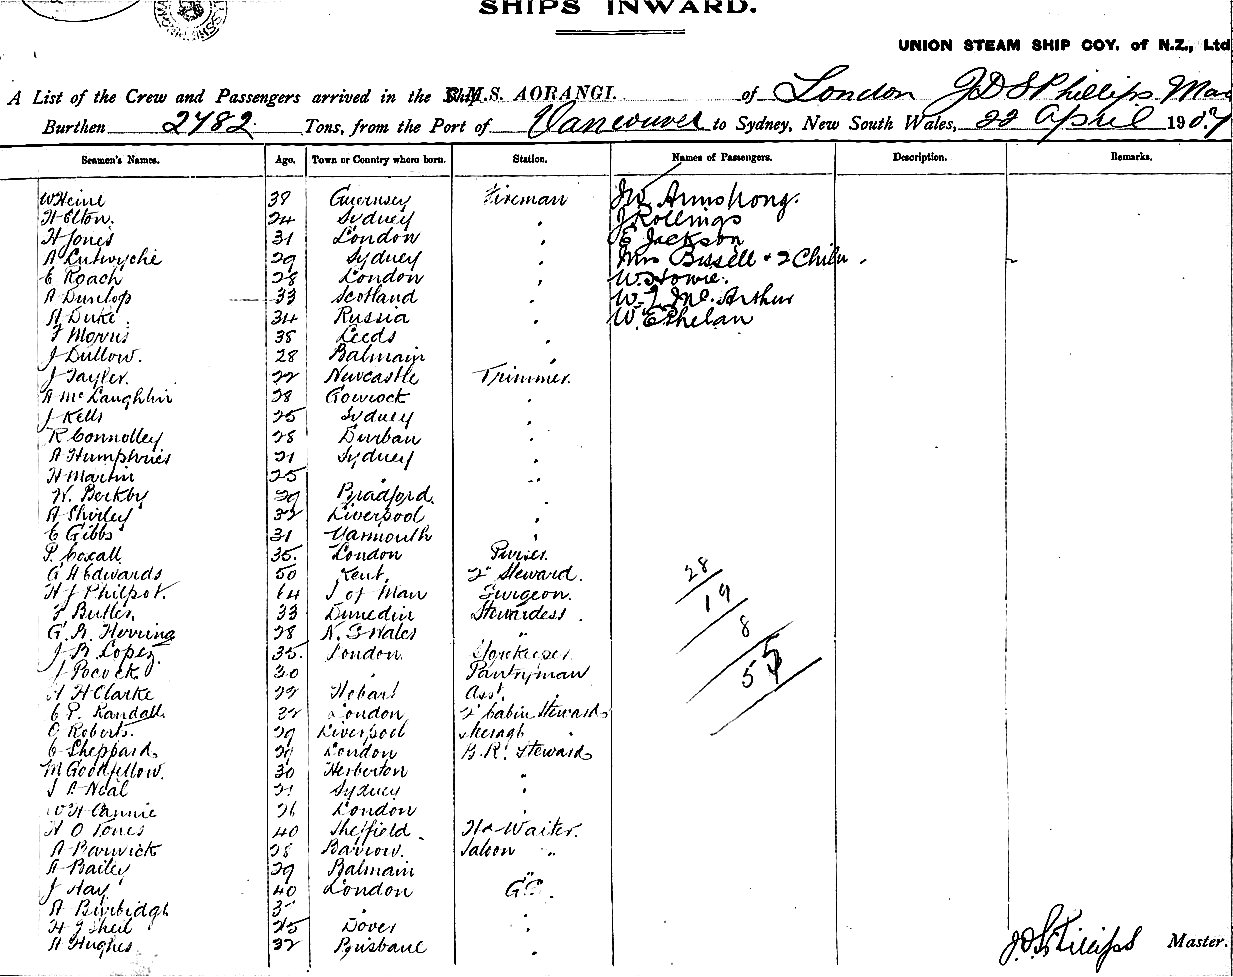 SHIPS INWARD.
UNION STEAM SHIP COY. of N.Z., Ltd
A List of the Crew and Passengers arrived in the R.M.S. AORANGI. of London J D S Phillips Mas
Burthen 2782 Tons, from the Port of Vancouver to Sydney, New South Wales, 22 April 1907
Seamen's Names. Age. Town or Country where born. Station. Names of Passengers. Description. Remarks.
W Heine 39 Guernsey Fireman J W Armstrong.
H Elton. 24 Sydney " J Rollings
H Jones 31 London " E Jackson
A Lutwyche 29 Sydney " Mrs Bissell & 2 Chiln.
E Roach 28 London " W. Howie.
A Dunlop 33 Scotland " W. J. Mc. Arthur
A Duke 34 Russia " W. E Phelan
F Morris 38 Leeds "
J Dullow. 28 Balmain "
J Tayler. 22 Newcastle Trimmer.
A McLaughlin 28 Gourock "
J Kells 25 Sydney "
R Connolley 28 Durban "
A Humphries 21 Sydney "
H Martin 25 " "
W. Berkby 29 Bradford. "
A Shirley 32 Liverpool "
E Gibbs 31 Yarmouth "
P. Coxall 35. London Purser.
G H Edwards 50 Kent. 2d Steward.
H J Philpot. 64 I of Man Surgeon.
F Butler. 33 Dunedin Stewardess.
G. A. Herring 28 N. S Wales "
J. B. Lopez. 35. London. Storekeeper
J Pocock. 30 " Pantryman
H H Clarke 22 Hobart Asst. "
E P. Randall. 32 London 2d Cabin Stewards
C Roberts. 29 Liverpool Steerage "
C Sheppard. 29 London B.R. Stewards
M Goodfellow. 30 Herberton "
J P Neal 21 Sydney "
W H Cannie 26 London "
H O Jones 40 Sheffield. Hd Waiter.
A Barwick 28 Barrow. Saloon "
A Bailey 29 Balmain "
J Hay 40 London G.S.
A Burbidge "
H J Sheil 25 Dover "
A Hughes. 32 Brisbane "
28
19
8
55
J D S Phillips Master.